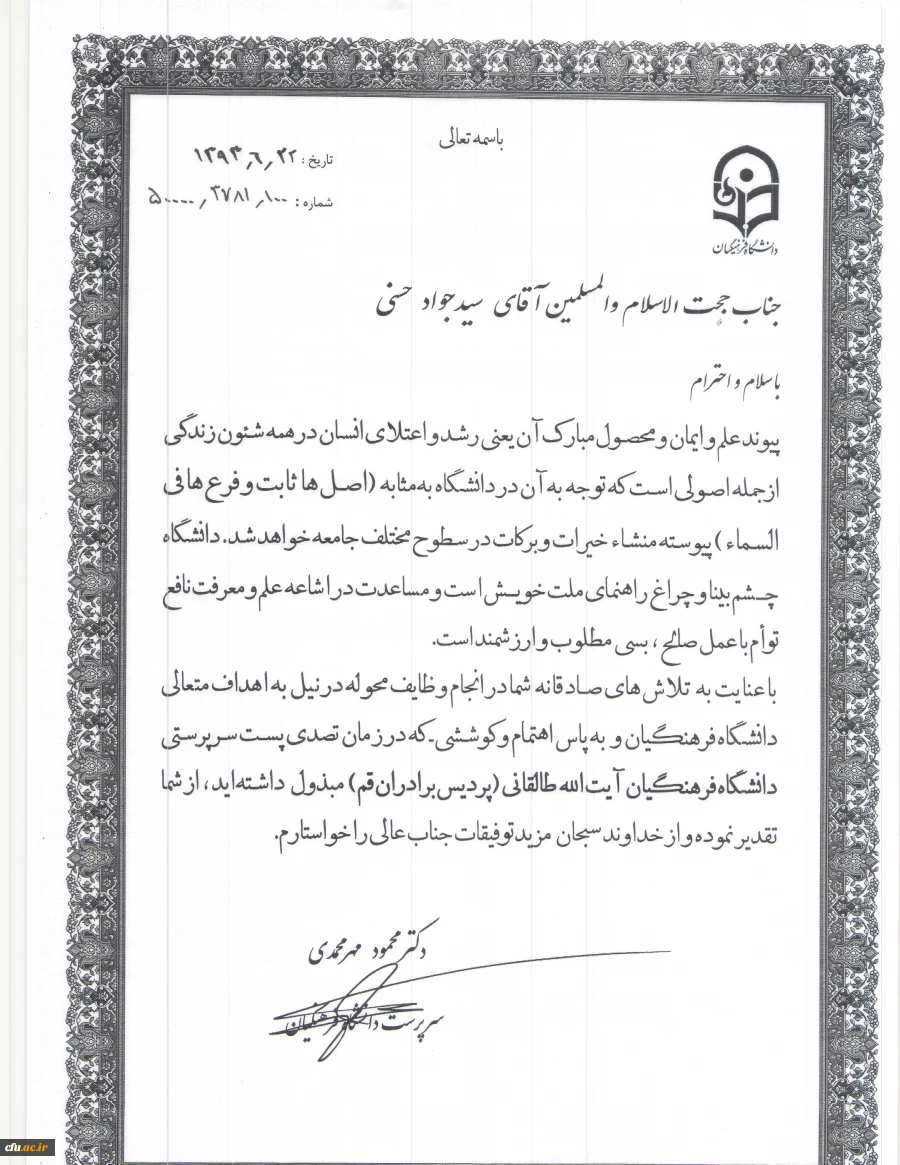 باسمه تعالی
تاریخ : ۱۳۹۳٫۶٫۲۲
شماره : ۵۰۰۰۰٫۳۷۸۱٫۱۰۰
دانشگاه فرهنگیان
جناب حجت الاسلام والمسلمین آقای سید جواد حسنی
با سلام و احترام
پیوند علم و ایمان و محصول مبارک آن یعنی رشد و اعتلای انسان در همه شئون زندگی
از جمله اصولی است که توجه به آن در دانشگاه به مثابه (اصل ها ثابت و فرع ها فی
السماء ) پیوسته منشاء خیرات و برکات در سطوح مختلف جامعه خواهد شد. دانشگاه
چشم بینا و چراغ راهنمای ملت خویش است و مساعدت در اشاعه علم و معرفت نافع
توأم با عمل صالح ، بسی مطلوب و ارزشمند است.
با عنایت به تلاش های صادقانه شما در انجام وظایف محوله در نیل به اهداف متعالی
دانشگاه فرهنگیان و به پاس اهتمام و کوششی که در زمان تصدی پست سرپرستی
دانشگاه فرهنگیان آیت الله طالقانی (پردیس برادران قم) مبذول داشته اید، از شما
تقدیر نموده و از خداوند سبحان مزید توفیقات جناب عالی را خواستارم.
دکتر محمود مهرمحمدی
سرپرست دانشگاه فرهنگیان
cfu.ac.ir